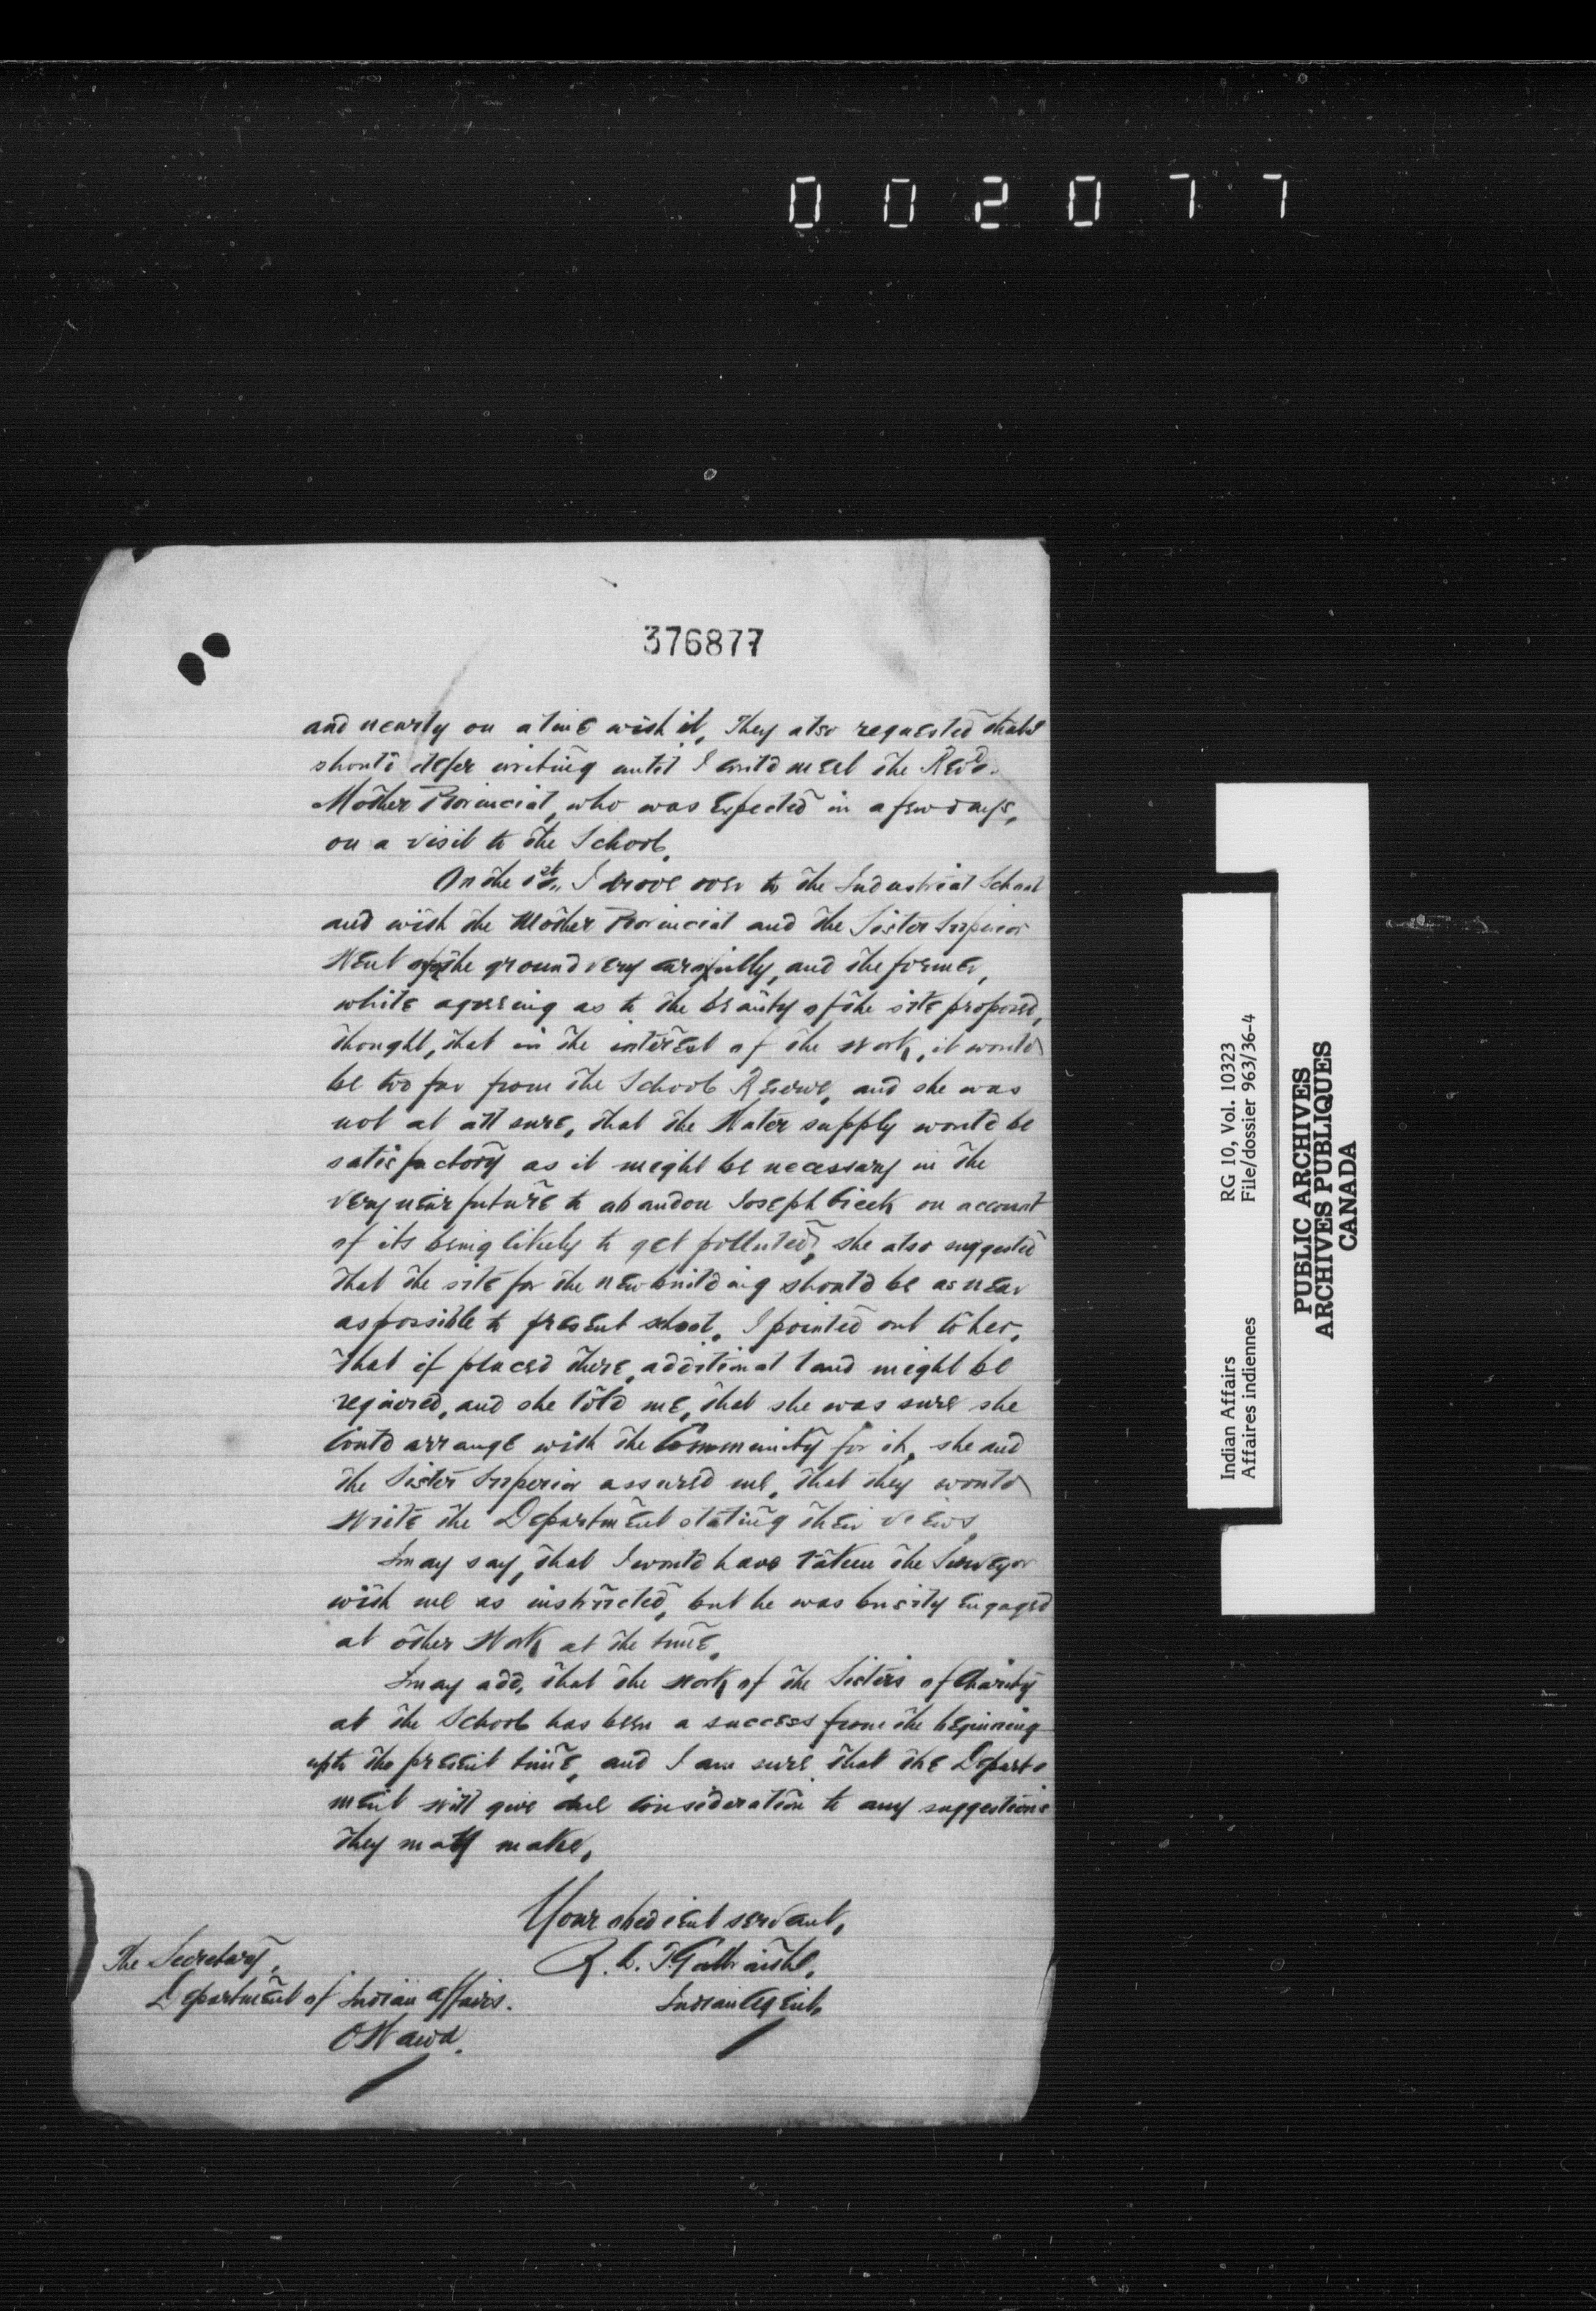 002077
376877
and nearly on a line with it, They also requested that I
should defer writing until I could meet the Revd.
Mother Provincial, who was expected in a few days,
on a visit to the School.
On the 1st, I drove over to the Industrial School
and with the Mother Provincial and the Sister Superior
went over the ground very carefully, and the former,
while agreeing as to the beauty of the site proposed,
thought, that in the interest of the work, it would
be too far from the School Reserve, and she was
not at all sure, that the Water supply would be
satisfactory as it might be necessary in the
very near future to abandon Joseph Creek on account
of its being likely to get polluted, she also suggested
that the site for the new building should be as near
as possible to present school. I pointed out to her,
that if placed there, additional land might be
required, and she told me, that she was sure she
could arrange with the Community for it, she and
the Sister Superior assured me, that they would
write the Department stating their views.
I may say, that I would have taken the Surveyor
with me as instructed, but he was busily engaged
at other work at the time.
I may add, that the work of the Sisters of Charity
at the School has been a success from the beginning
up to the present time, and I am sure that the Depart-
ment will give due consideration to any suggestions
they may make,
Your obedient servant,
R. L. T. Galbraith,
Indian Agent,
The Secretary,
Department of Indian Affairs.
Ottawa.
Indian Affairs RG 10, Vol. 10323
Affaires indiennes File/dossier 963/36-4
PUBLIC ARCHIVES
ARCHIVES PUBLIQUES
CANADA